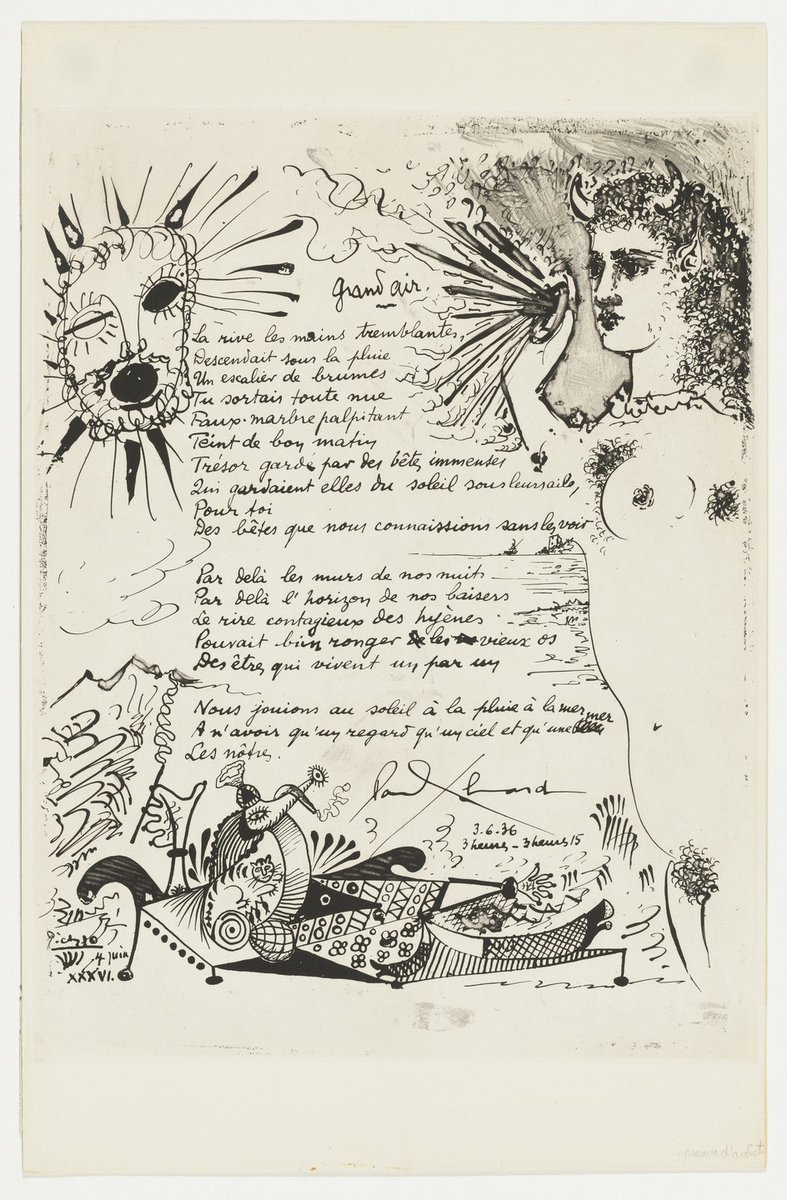 Grand air.
La rive les mains tremblantes,
Descendait sous la pluie
Un escalier de brumes
Tu sortais toute nue
Faux marbre palpitant
Teint de bon matin
Trésor gardé par des bêtes immenses
Qui gardaient elles du soleil sous leurs ailes,
Pour toi
Des bêtes que nous connaissions sans les voir
Par delà les murs de nos nuits
Par delà l'horizon de nos baisers
Le rire contagieux des hyènes
Pouvait bien ronger les vieux os
Des êtres qui vivent un par un
Nous jouions au soleil à la pluie à la mer
A n'avoir qu'un regard qu'un ciel et qu'une mer
Les nôtres.
Paul Eluard
3-6-36
3 heures - 3 heures 15
Picasso
4 juin
XXXVI.
épreuve d'artiste